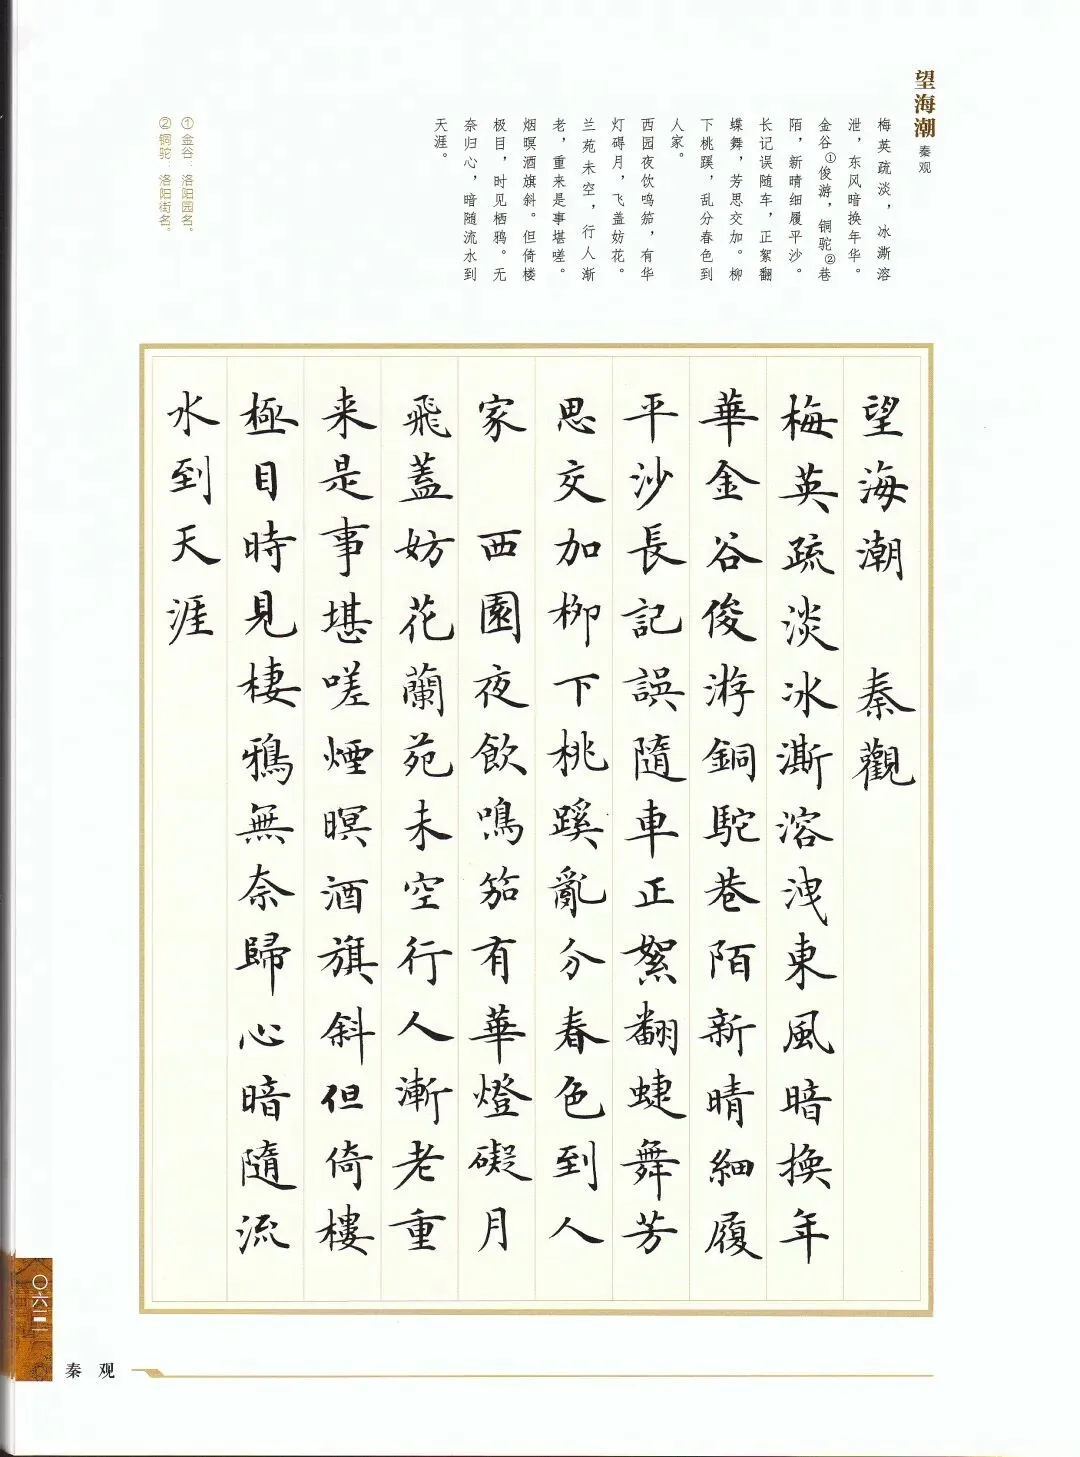 望海潮
秦观
梅英疏淡，冰澌溶
泄，东风暗换年华。
金谷①俊游，铜驼②巷
陌，新晴细履平沙。
长记误随车，正絮翻
蝶舞，芳思交加。柳
下桃蹊，乱分春色到
人家。
西园夜饮鸣笳，有华
灯碍月，飞盖妨花。
兰苑未空，行人渐
老，重来是事堪嗟。
烟暝酒旗斜。但倚楼
极目，时见栖鸦。无
奈归心，暗随流水到
天涯。
①金谷：洛阳园名。
②铜驼：洛阳街名。
望海潮 秦觀
梅英疏淡冰澌溶洩東風暗換年
華金谷俊游銅駝巷陌新晴細履
平沙長記誤隨車正絮翻蜨舞芳
思交加柳下桃蹊亂分春色到人
家 西園夜飲鳴笳有華燈礙月
飛蓋妨花蘭苑未空行人漸老重
来是事堪嗟煙暝酒旗斜但倚樓
極目時見棲鴉無奈歸心暗隨流
水到天涯
〇六三
秦观